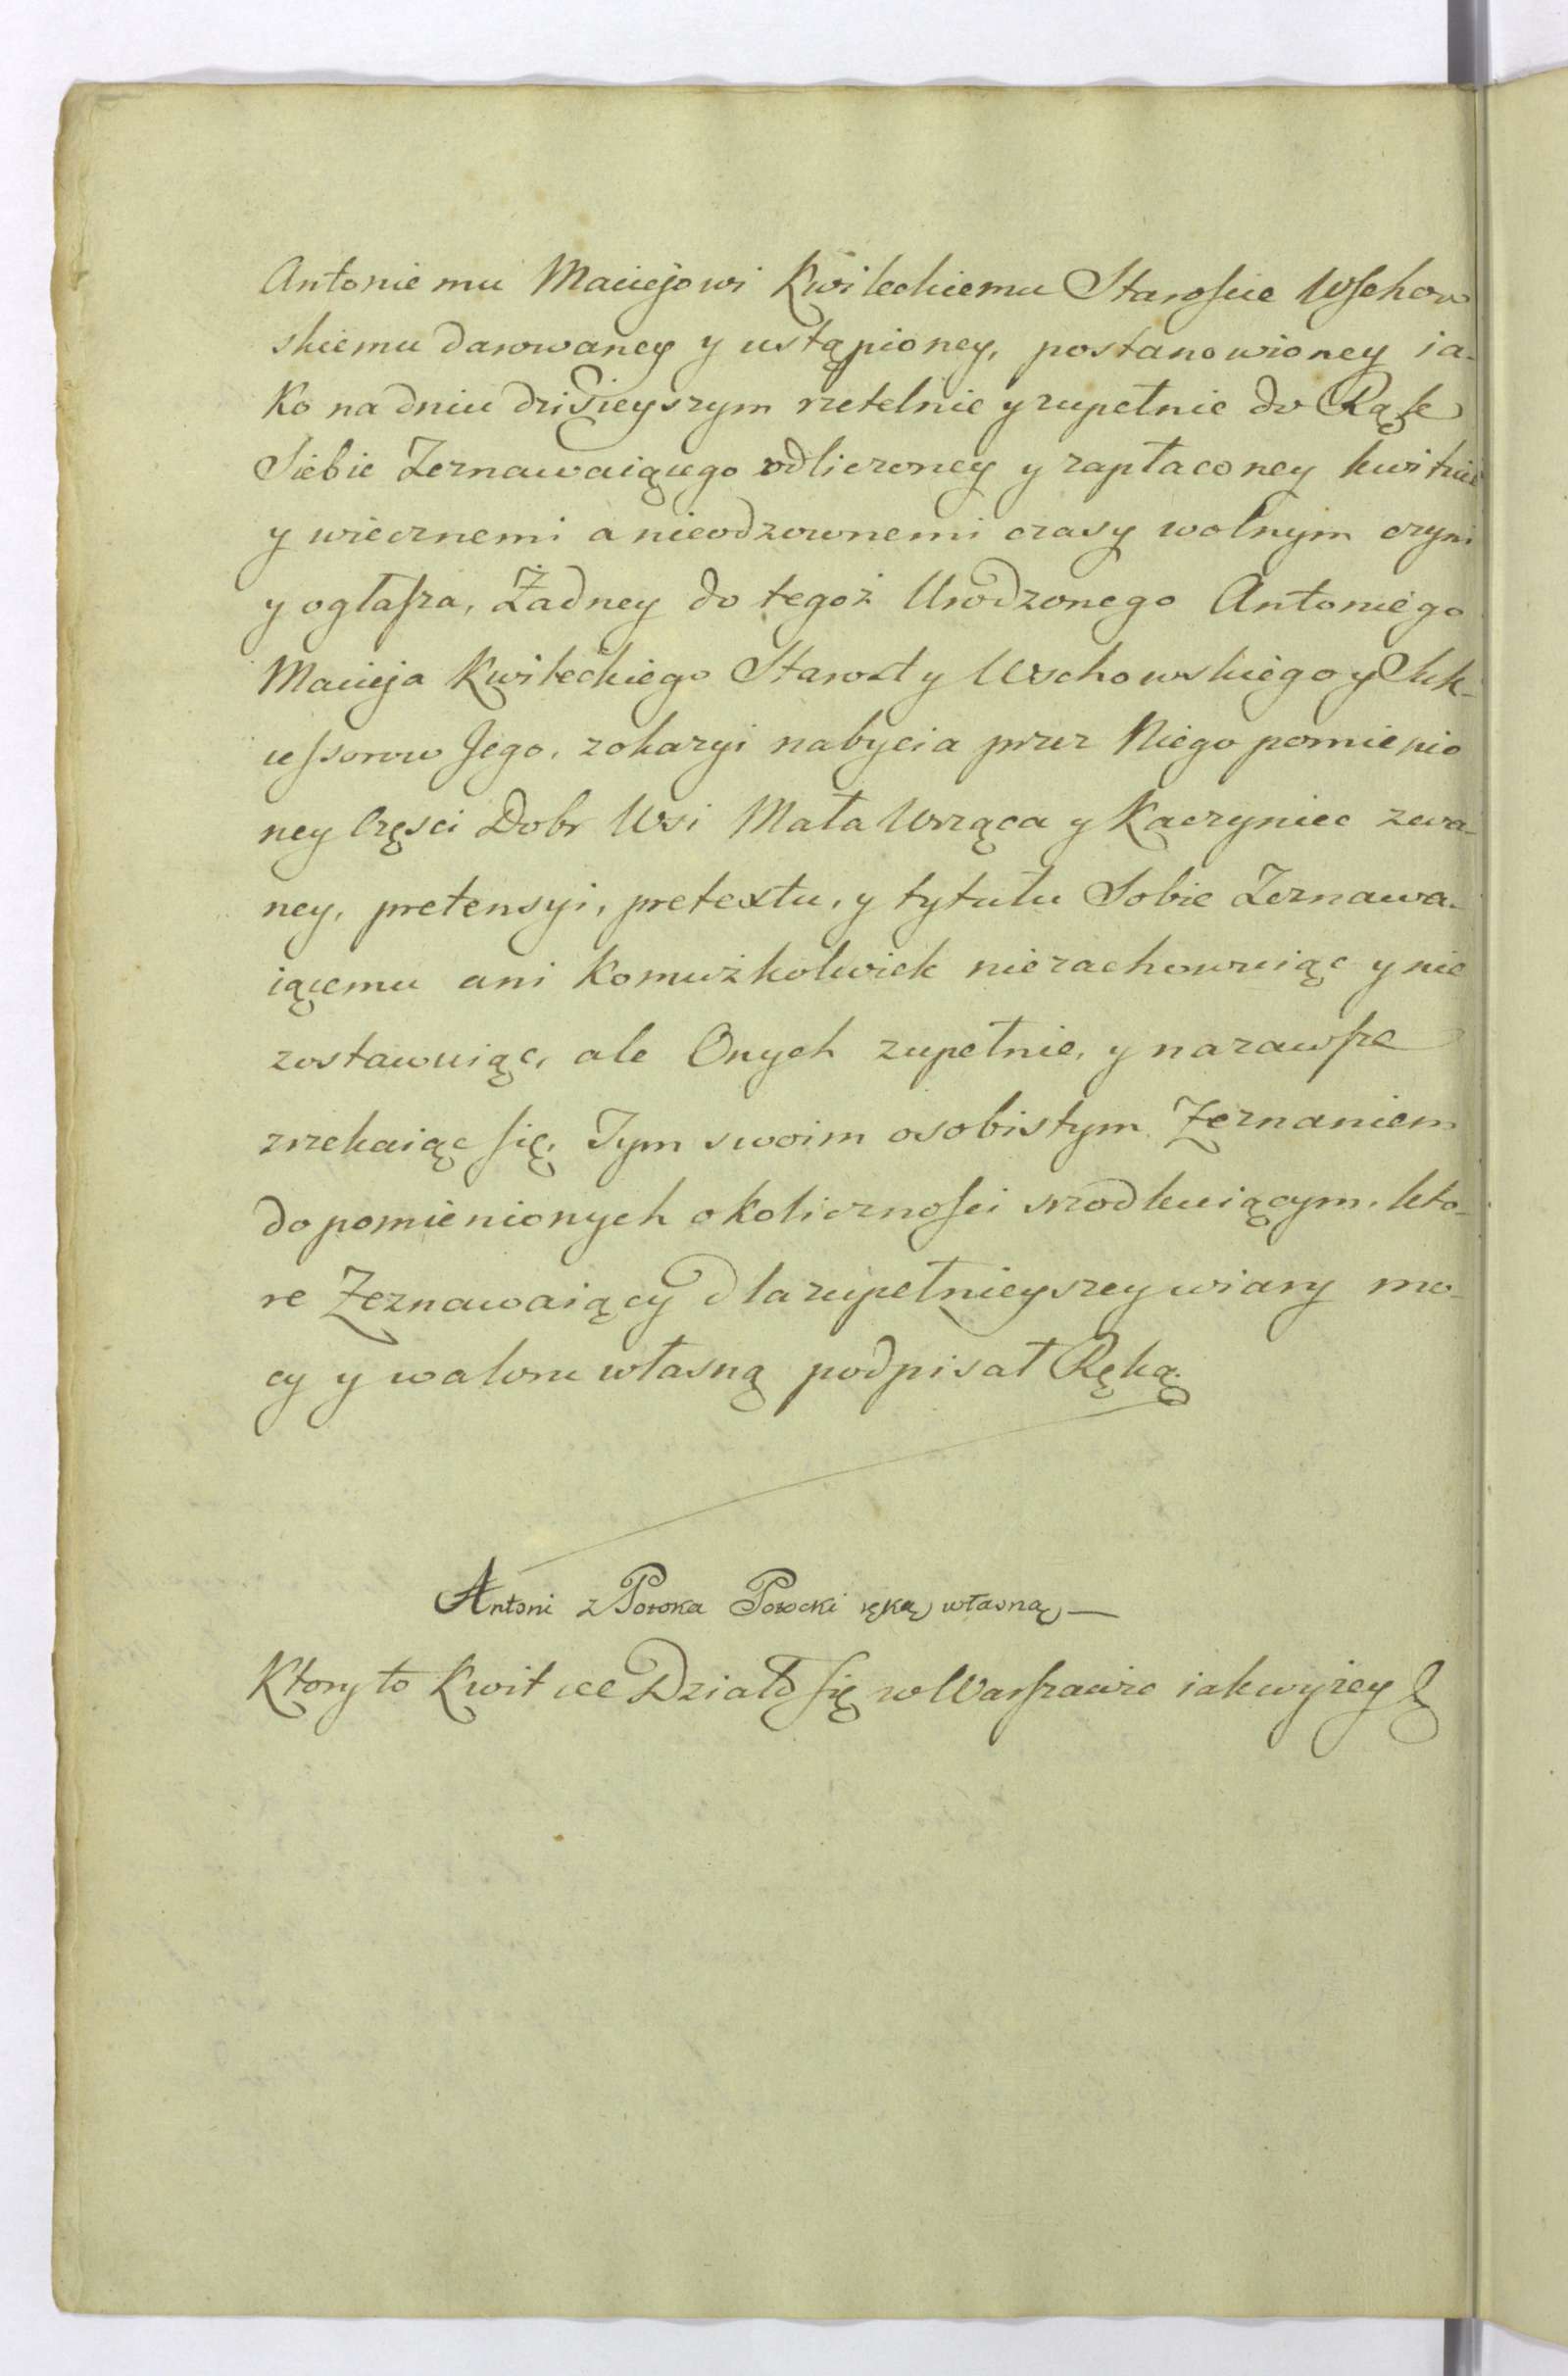 Antoniemu Maciejowi Kwileckiemu Staroście Wschow
skiemu darowaney y ustąpioney, postanowioney ia-
ko na dniu dzisieyszym rzetelnie y zupełnie do Rąk
Siebie Zeznawaiącego odliczoney y zapłaconey kwituie
y wiecznemi a nieodzownemi czasy wolnym czyni
y ogłasza, Żadney do tegoż Urodzonego Antoniego
Macieja Kwileckiego Starosty Wschowskiego y Suk-
cessorow Jego, z okazyi nabycia przez Niego pomienio
ney Części Dobr Wsi Mała Wrząca y Kączyniec zwa-
ney, pretensyi, pretextu, y tytułu Sobie Zeznawa-
iącemu ani komużkolwiek niezachowuiąc y nie
zostawuiąc, ale Onych zupełnie, y nazawsze
zrzekaiąc się, Tym swoim osobistym Zeznaniem
do pomienionych okoliczności srzodkuiącym, kto-
re Zeznawaiący dla zupełnieyszey wiary mo-
cy y waloru własną podpisał Ręką.
Antoni z Potoka Potocki ręką własną —
Ktory to Kwit ce Działo się w Warszawie iak wyżey